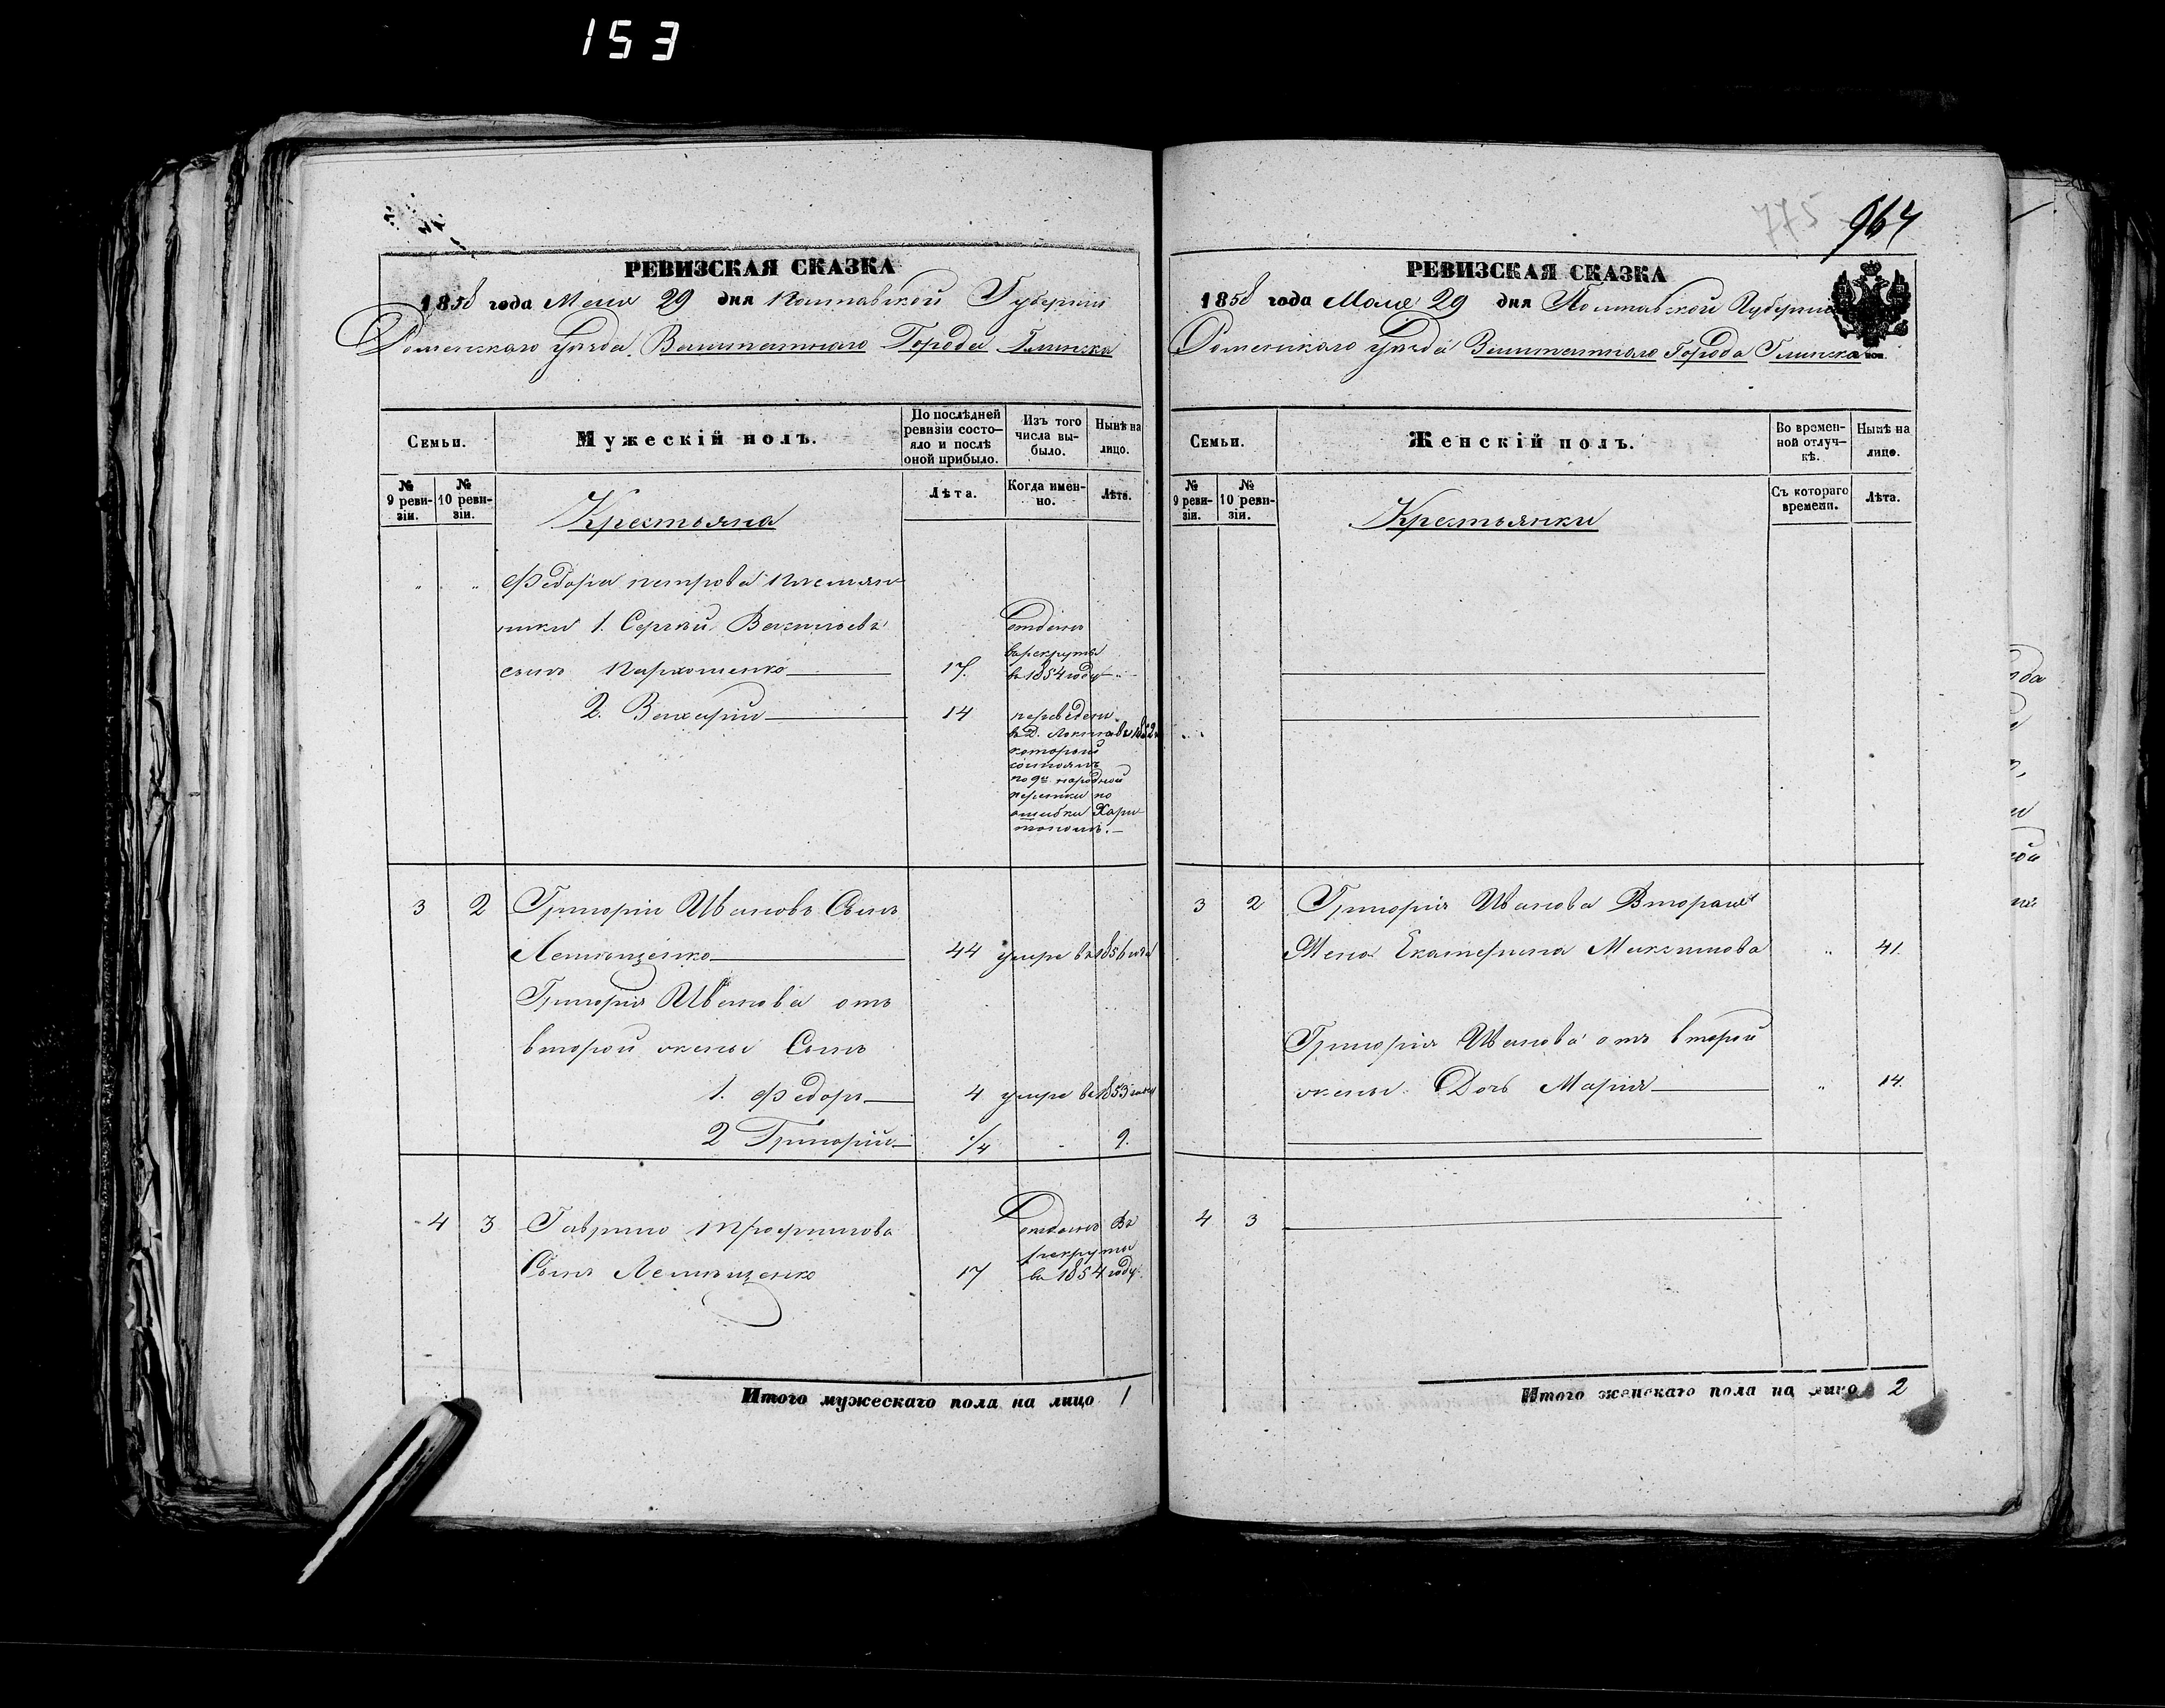 153
РЕВИЗСКАЯ СКАЗКА
1858 года Мая 29 дня Полтавской Губерніи
Роменскаго уѣзда Заштатнаго Города Глинска
Семьи.
Мужескій полъ.
По послѣдней ревизіи состо-яло и послѣ оной прибыло.
Изъ того числа вы-было.
Нынѣ на лицо.
№ 9 реви-зіи.
№ 10 реви-зіи.
Крестьяна
Лѣта.
Когда имен-но.
Лѣта.
Федора петрова племян
ники 1. Сергѣй Васильевъ
отданъ
врекруты
сынъ Пархоменко 17. въ 1854 году
2. Захарій 14 переведенъ
въ Д.
который
состоялъ
по 9й народной
переписи по
ошибки Хари
тономъ.
3 2 Григорій Ивановъ Сынъ
Лемѣщенко 44 умре въ 1856 года
Григорія Иванова отъ
второй жены Сынъ
1. Федоръ 4 умре въ 1853 года
2 Григорій 1/4 9.
4 3 Гаврило Трофимова
отданъ Въ
рекруты
Сынъ Лемѣщенко 17 въ 1854 году
Итого мужескаго пола на лицо 1
775 964
РЕВИЗСКАЯ СКАЗКА
1858 года Мая 29 дня Полтавской Губерніи
Роменскаго уѣзда Заштатнаго Города Глинска
Семьи.
Женскій полъ.
Во времен-ной отлуч-кѣ.
Нынѣ на лицо.
№ 9 реви-зіи.
№ 10 реви-зіи.
Крестьянки
Съ котораго времени.
Лѣта.
3 2 Григорія Иванова Вторая
Жена Екатерина Максимова " 41.
Григорія Иванова отъ второй
жены Дочь Марія " 14.
4 3
Итого женскаго пола на лицо 2